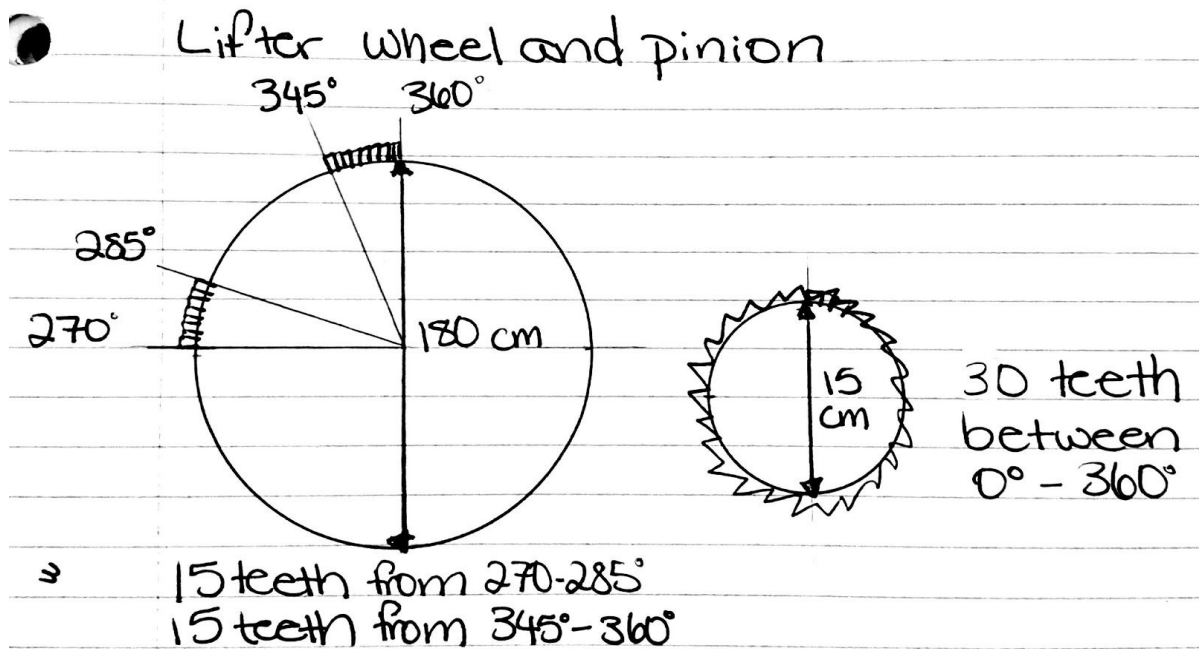 Lifter wheel and pinion
345° 360°
285°
270°
180 cm
15
cm
30 teeth
between
0° - 360°
15 teeth from 270-285°
15 teeth from 345°-360°